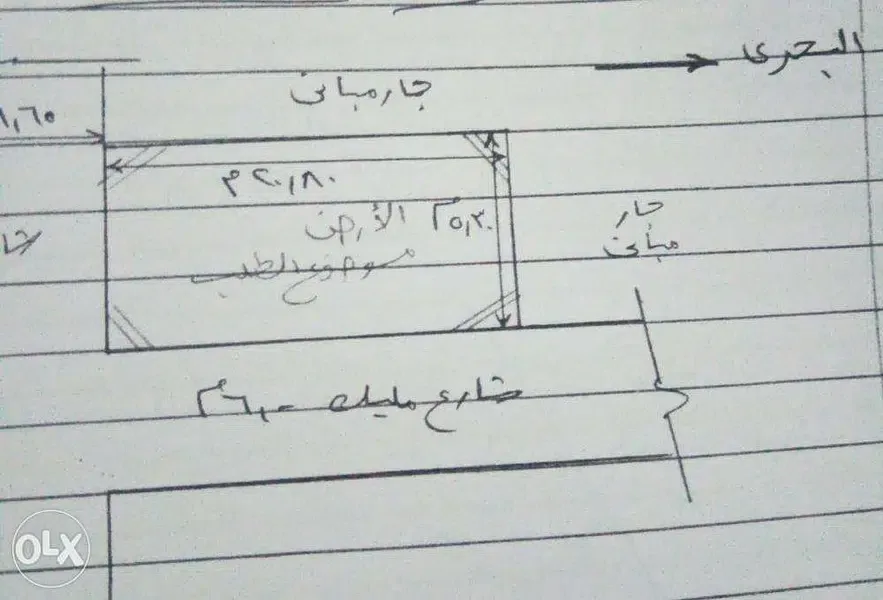 البحرى
جار مبانى
٢٠,٨٠ م
الأرض
٥,٢٠ م
موضوع الطلب
جار
مبانى
شارع مليك ٦,٠٠ م
OLX